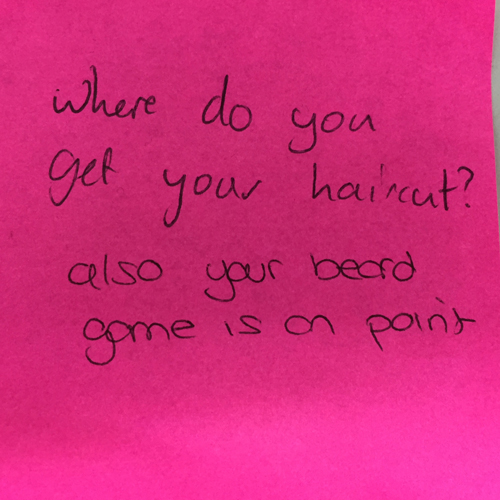 where do you
get your haircut?
also your beard
game is on point